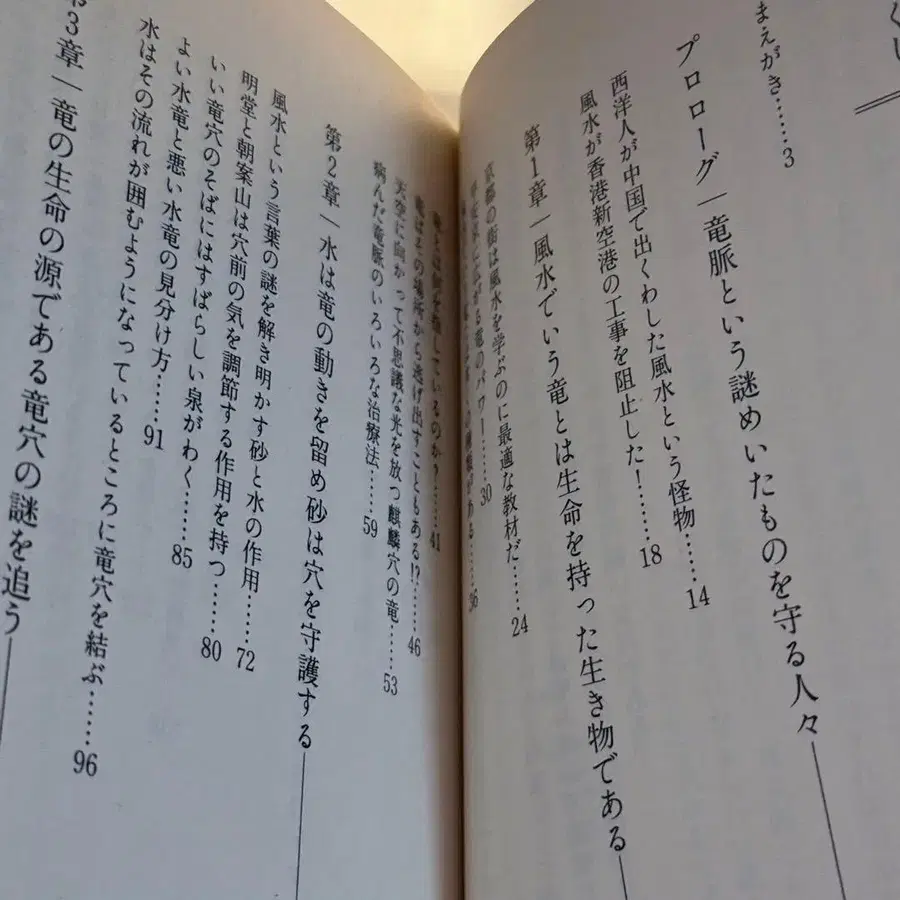 くじ
まえがき……3
プロローグ―竜脈という謎めいたものを守る人々
西洋人が中国で出くわした風水という怪物……14
風水が香港新空港の工事を阻止した!……18
第1章―風水でいう竜とは生命を持った生き物である
京都の街は風水を学ぶのに最適な教材だ……24
平安京に広がる竜のパワー……30
種類がある……36
竜とは何を指しているのか?……41
竜はその場所から逃げ出すこともある!?……46
天空に向かって不思議な光を放つ麒麟穴の竜……53
病んだ竜脈のいろいろな治療法……59
第2章―水は竜の動きを留め砂は穴を守護する
風水という言葉の謎を解き明かす砂と水の作用……72
明堂と朝案山は穴前の気を調節する作用を持つ……80
いい竜穴のそばにはすばらしい泉がわく……85
よい水竜と悪い水竜の見分け方……91
水はその流れが囲むようになっているところに竜穴を結ぶ……96
第3章―竜の生命の源である竜穴の謎を追う